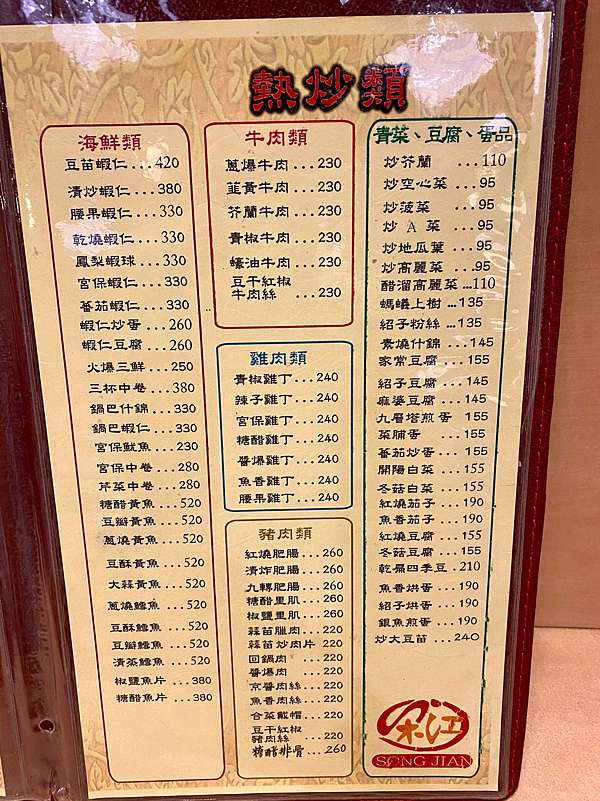 熱炒類
海鮮類
豆苗蝦仁...420
清炒蝦仁...380
腰果蝦仁...330
乾燒蝦仁...330
鳳梨蝦球...330
宮保蝦仁...330
蕃茄蝦仁...330
蝦仁炒蛋...260
蝦仁豆腐...260
火爆三鮮...250
三杯中卷...380
鍋巴什錦...330
鍋巴蝦仁...330
宮保魷魚...230
宮保中卷...280
芹菜中卷...280
糖醋黃魚...520
豆瓣黃魚...520
蔥燒黃魚...520
豆酥黃魚...520
大蒜黃魚...520
蔥燒鱈魚...520
豆酥鱈魚...520
豆瓣鱈魚...520
清蒸鱈魚...520
椒鹽魚片...380
糖醋魚片...380
牛肉類
蔥爆牛肉...230
韮黃牛肉...230
芥蘭牛肉...230
青椒牛肉...230
蠔油牛肉...230
豆干紅椒
牛肉絲...230
雞肉類
青椒雞丁...240
辣子雞丁...240
宮保雞丁...240
糖醋雞丁...240
醬爆雞丁...240
魚香雞丁...240
腰果雞丁...240
豬肉類
紅燒肥腸...260
清炸肥腸...260
九轉肥腸...260
糖醋里肌...260
椒鹽里肌...260
蒜苗臘肉...220
蒜苗炒肉片 220
回鍋肉...220
醬爆肉...220
京醬肉絲...220
魚香肉絲...220
合菜戴帽...220
豆干紅椒
豬肉絲...220
糖醋排骨...260
青菜、豆腐、蛋品
炒芥蘭...110
炒空心菜...95
炒菠菜...95
炒A菜...95
炒地瓜葉...95
炒高麗菜...95
醋溜高麗菜...110
螞蟻上樹...135
紹子粉絲...135
素燒什錦...145
家常豆腐...155
紹子豆腐...145
麻婆豆腐...145
九層塔煎蛋 155
菜脯蛋...155
蕃茄炒蛋...155
開陽白菜...155
冬菇白菜...155
紅燒茄子...190
魚香茄子...190
紅燒豆腐...155
冬菇豆腐...155
乾扁四季豆.210
魚香烘蛋...190
紹子烘蛋...190
銀魚煎蛋...190
炒大豆苗...240
宋江
SONG JIAN